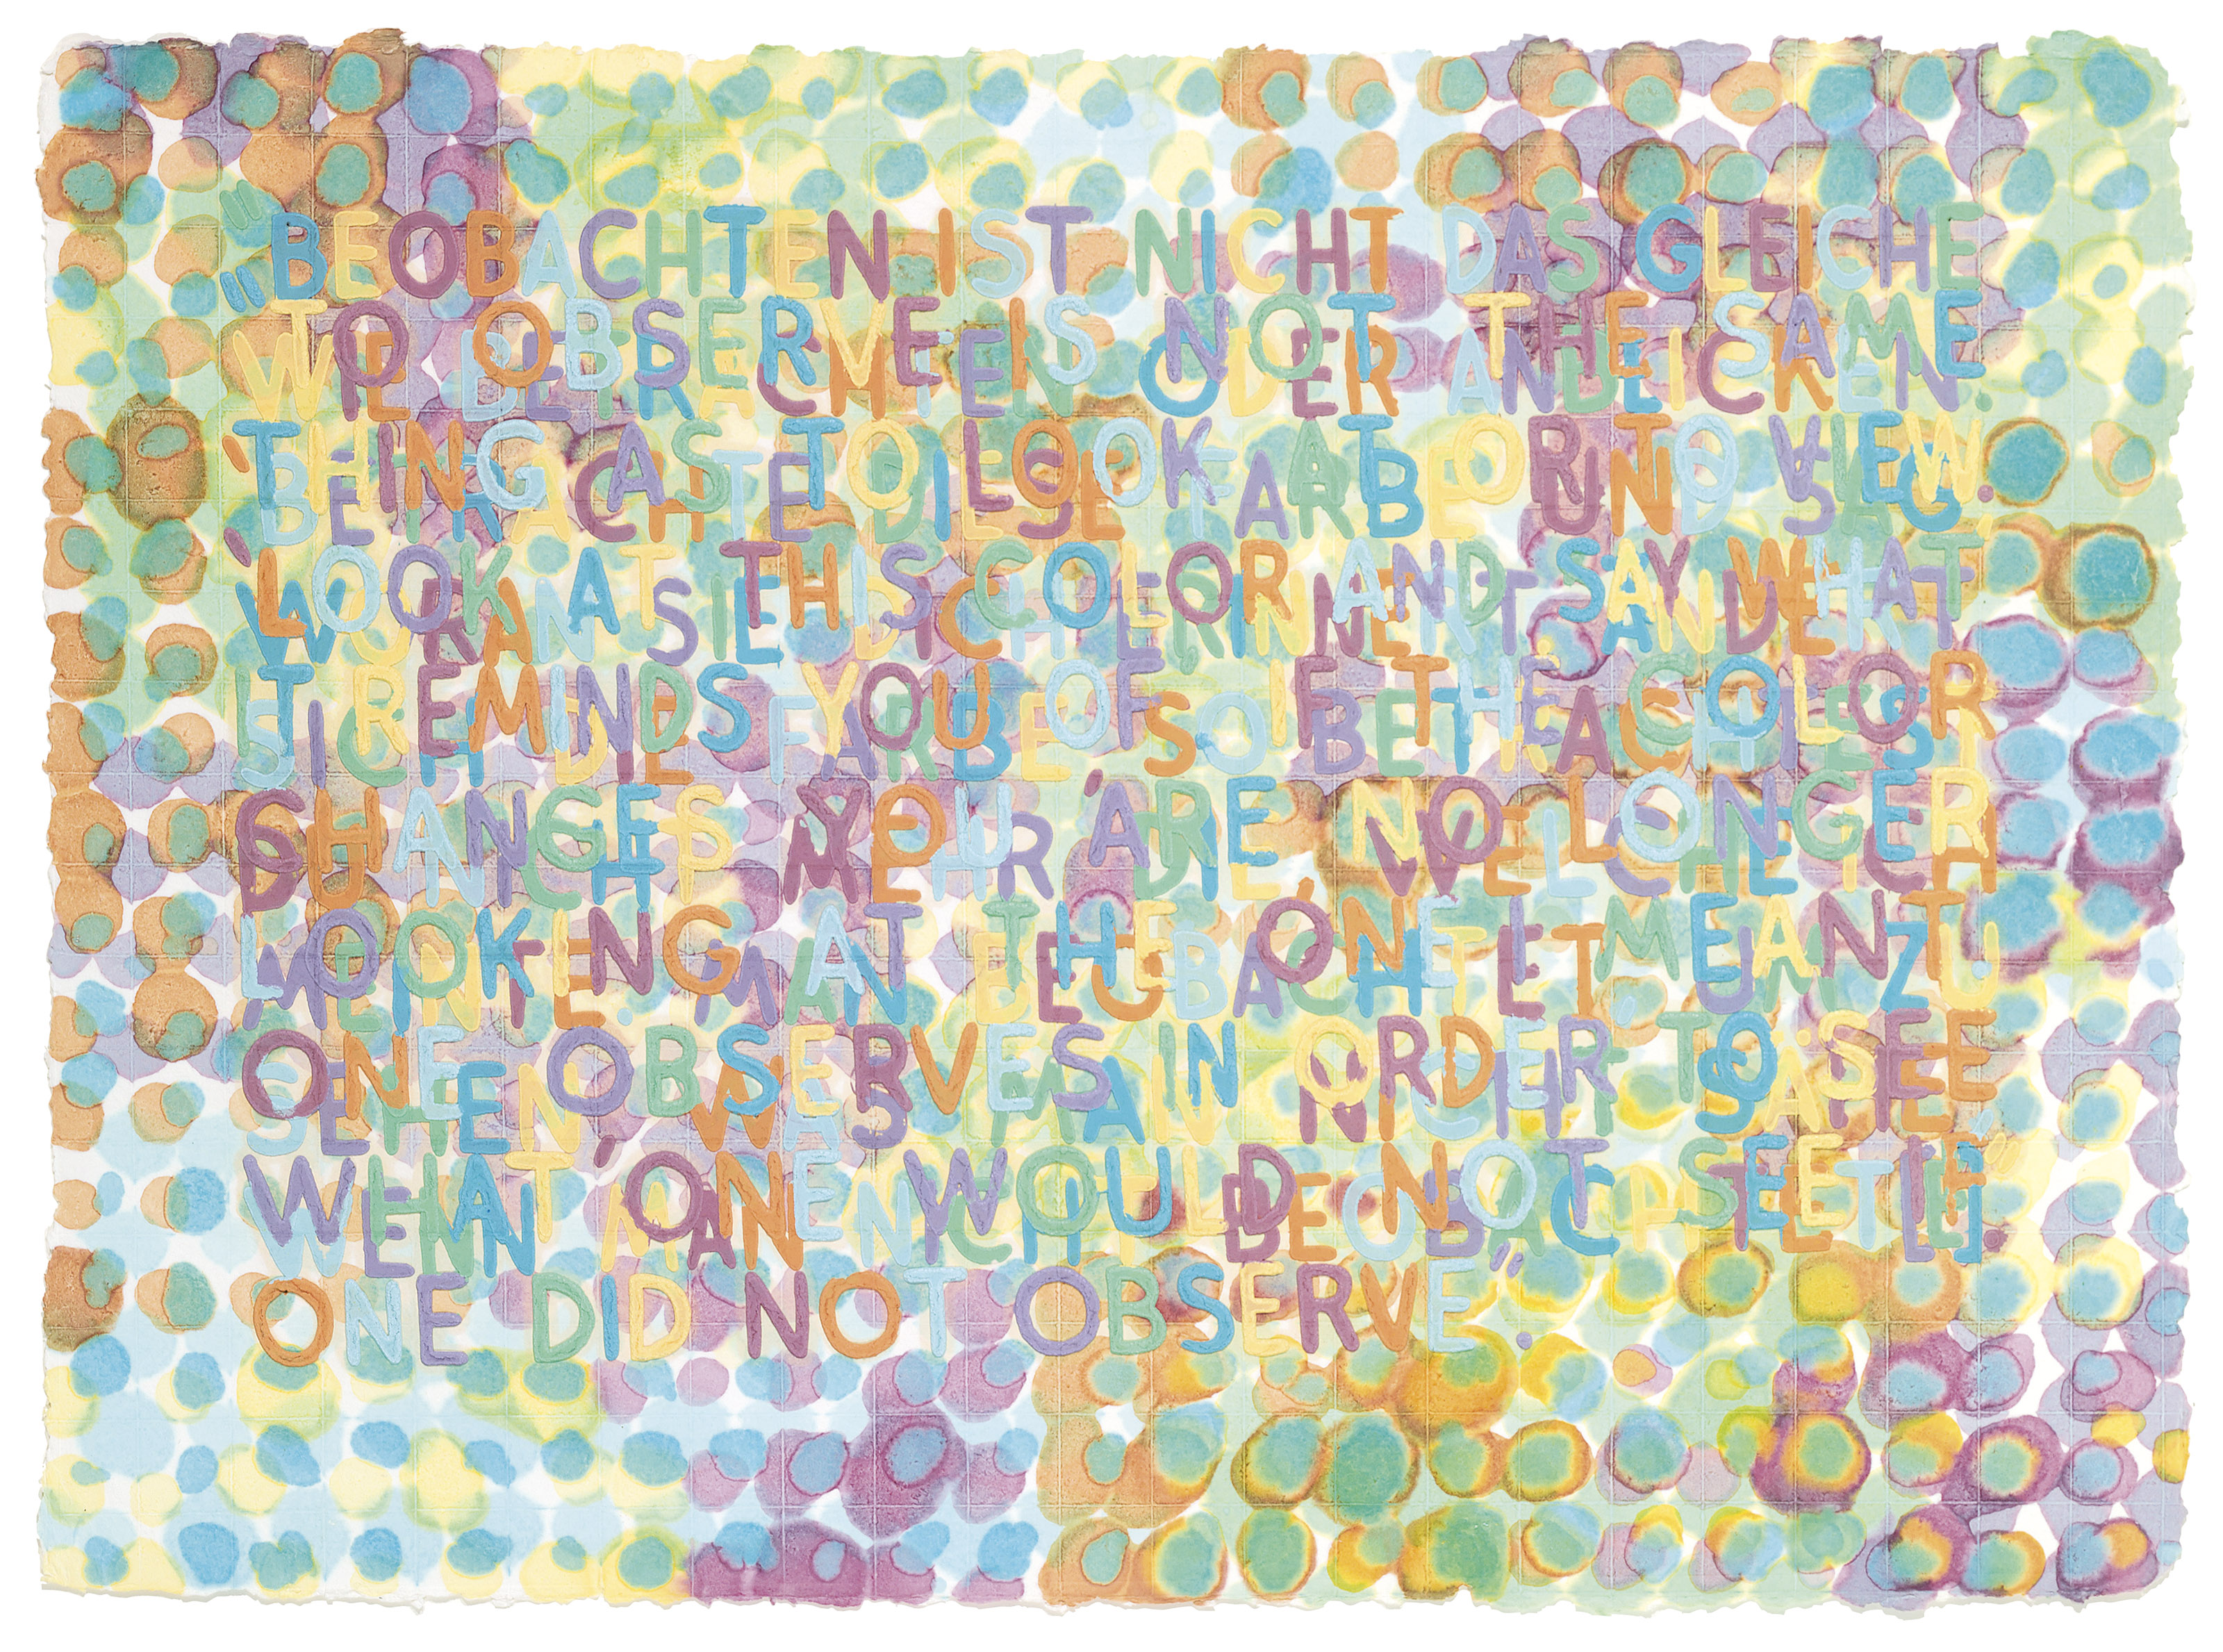 "BEOBACHTEN IST NICHT DAS GLEICHE
"TO OBSERVE IS NOT THE SAME
WIE BETRACHTEN ODER ANBLICKEN.
THING AS TO LOOK AT OR TO VIEW.
'BETRACHTE DIESE FARBE UND SAG
'LOOK AT THIS COLOR AND SAY WHAT
WORAN SIE DICH ERINNERT'
IT REMINDS YOU OF' IF THE COLOR
SICH DIE FARBE, SO
CHANGES YOU ARE NO LONGER
DU NICHT MEHR DIE, WELCHE ICH
LOOKING AT THE ONE I MEANT.
MEINTE. MAN BEOBACHTET, UM ZU
ONE OBSERVES IN ORDER TO SEE
SEHEN, WAS MAN NICHT SÄHE,
WHAT ONE WOULD NOT SEE IF
WENN MAN NICHT BEOBACHTET[E]."
ONE DID NOT OBSERVE".